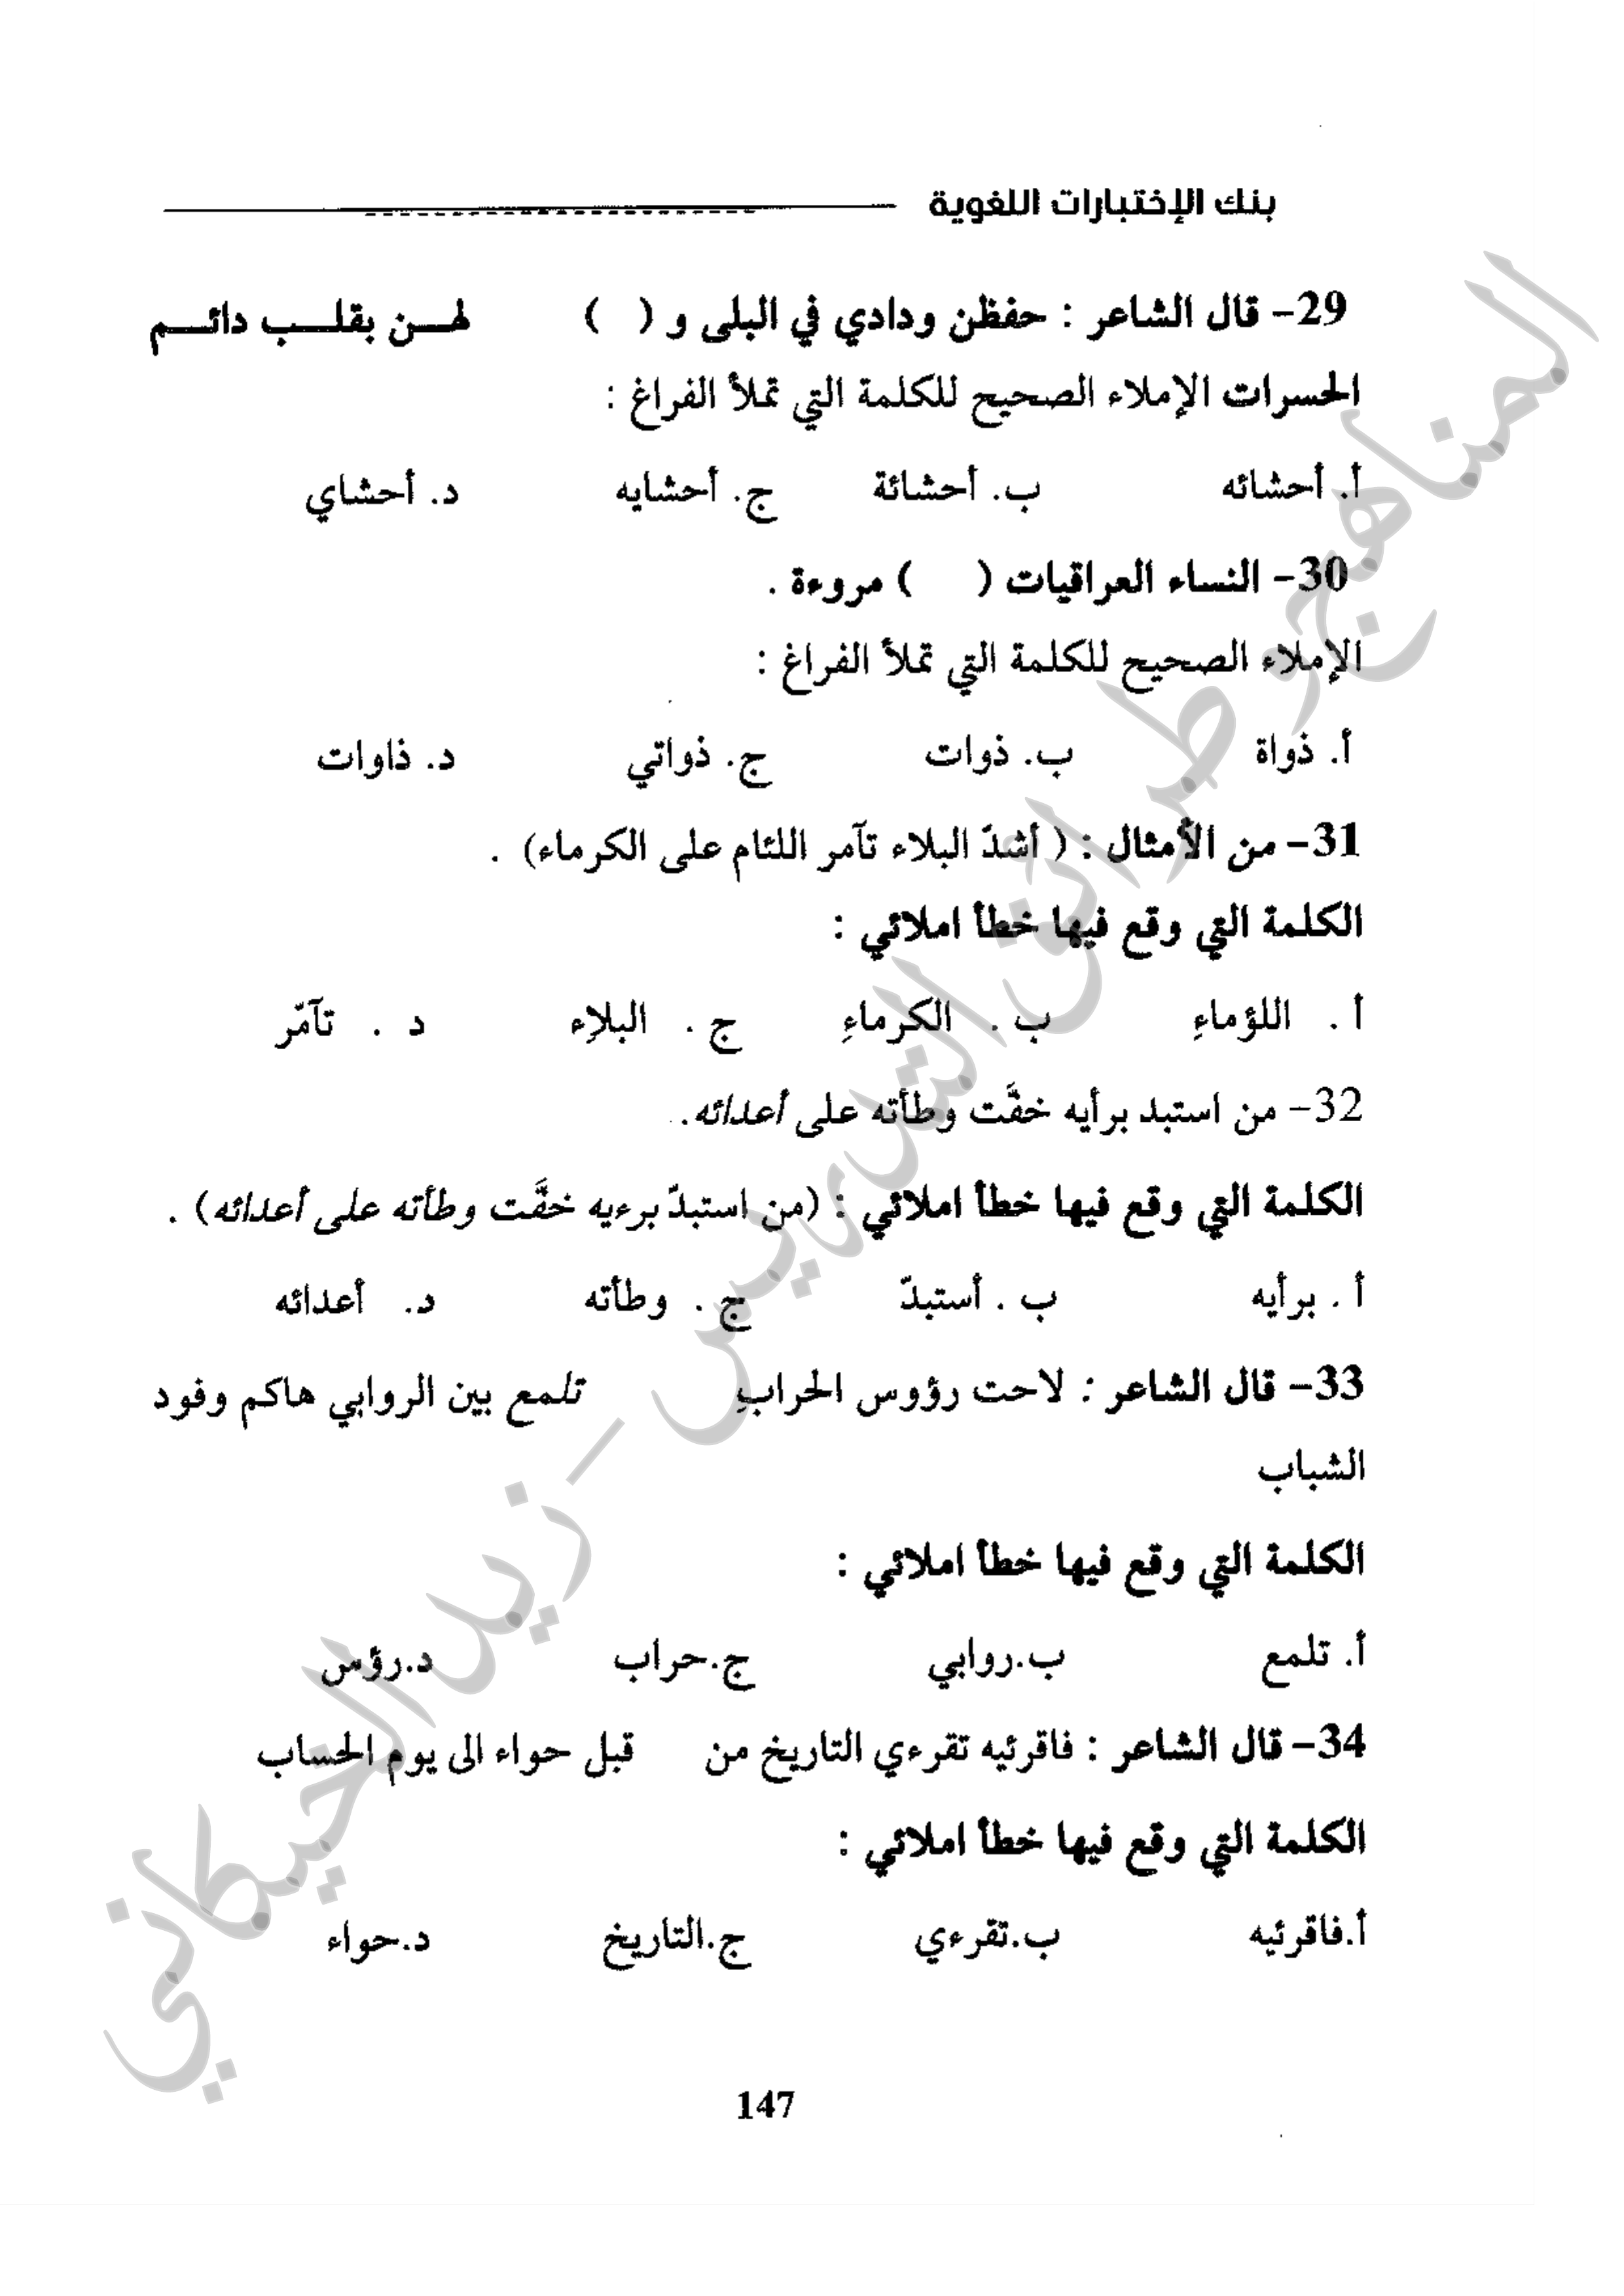 بنك الإختبارات اللغوية
29- قال الشاعر : حفظن ودادي في البلى و ( ) لهـــن بقلــــب دائـــم
الحسرات الإملاء الصحيح للكلمة التي تملأ الفراغ :
أ. أحشائه ب. أحشائة ج. أحشايه د. أحشاي
30- النساء العراقيات ( ) مروءة .
الإملاء الصحيح للكلمة التي تملأ الفراغ :
أ. ذواة ب. ذوات ج. ذواتي د. ذاوات
31- من الأمثال : ( أشدّ البلاء تآمر اللئام على الكرماء) .
الكلمة التي وقع فيها خطأ املائي :
أ . اللؤماءِ ب . الكرماءِ ج . البلاِء د . تآمّر
32- من استبد برأيه خفَّت وطأته على أعدائه.
الكلمة التي وقع فيها خطأ املائي : (من استبدّ برءيه خفَّت وطأته على أعدائه) .
أ . برأيه ب . أستبدّ ج . وطأته د. أعدائه
33- قال الشاعر : لاحت رؤوس الحرابِ تلمع بين الروابي هاكم وفود
الشباب
الكلمة التي وقع فيها خطأ املائي :
أ. تلمع ب.روابي ج.حراب د.رؤس
34- قال الشاعر : فاقرئيه تقرءي التاريخ من قبل حواء الى يوم الحساب
الكلمة التي وقع فيها خطأ املائي :
أ.فاقرئيه ب.تقرءي ج.التاريخ د.حواء
147
المناهج وطرائق التدريس - زيد الخيكاني